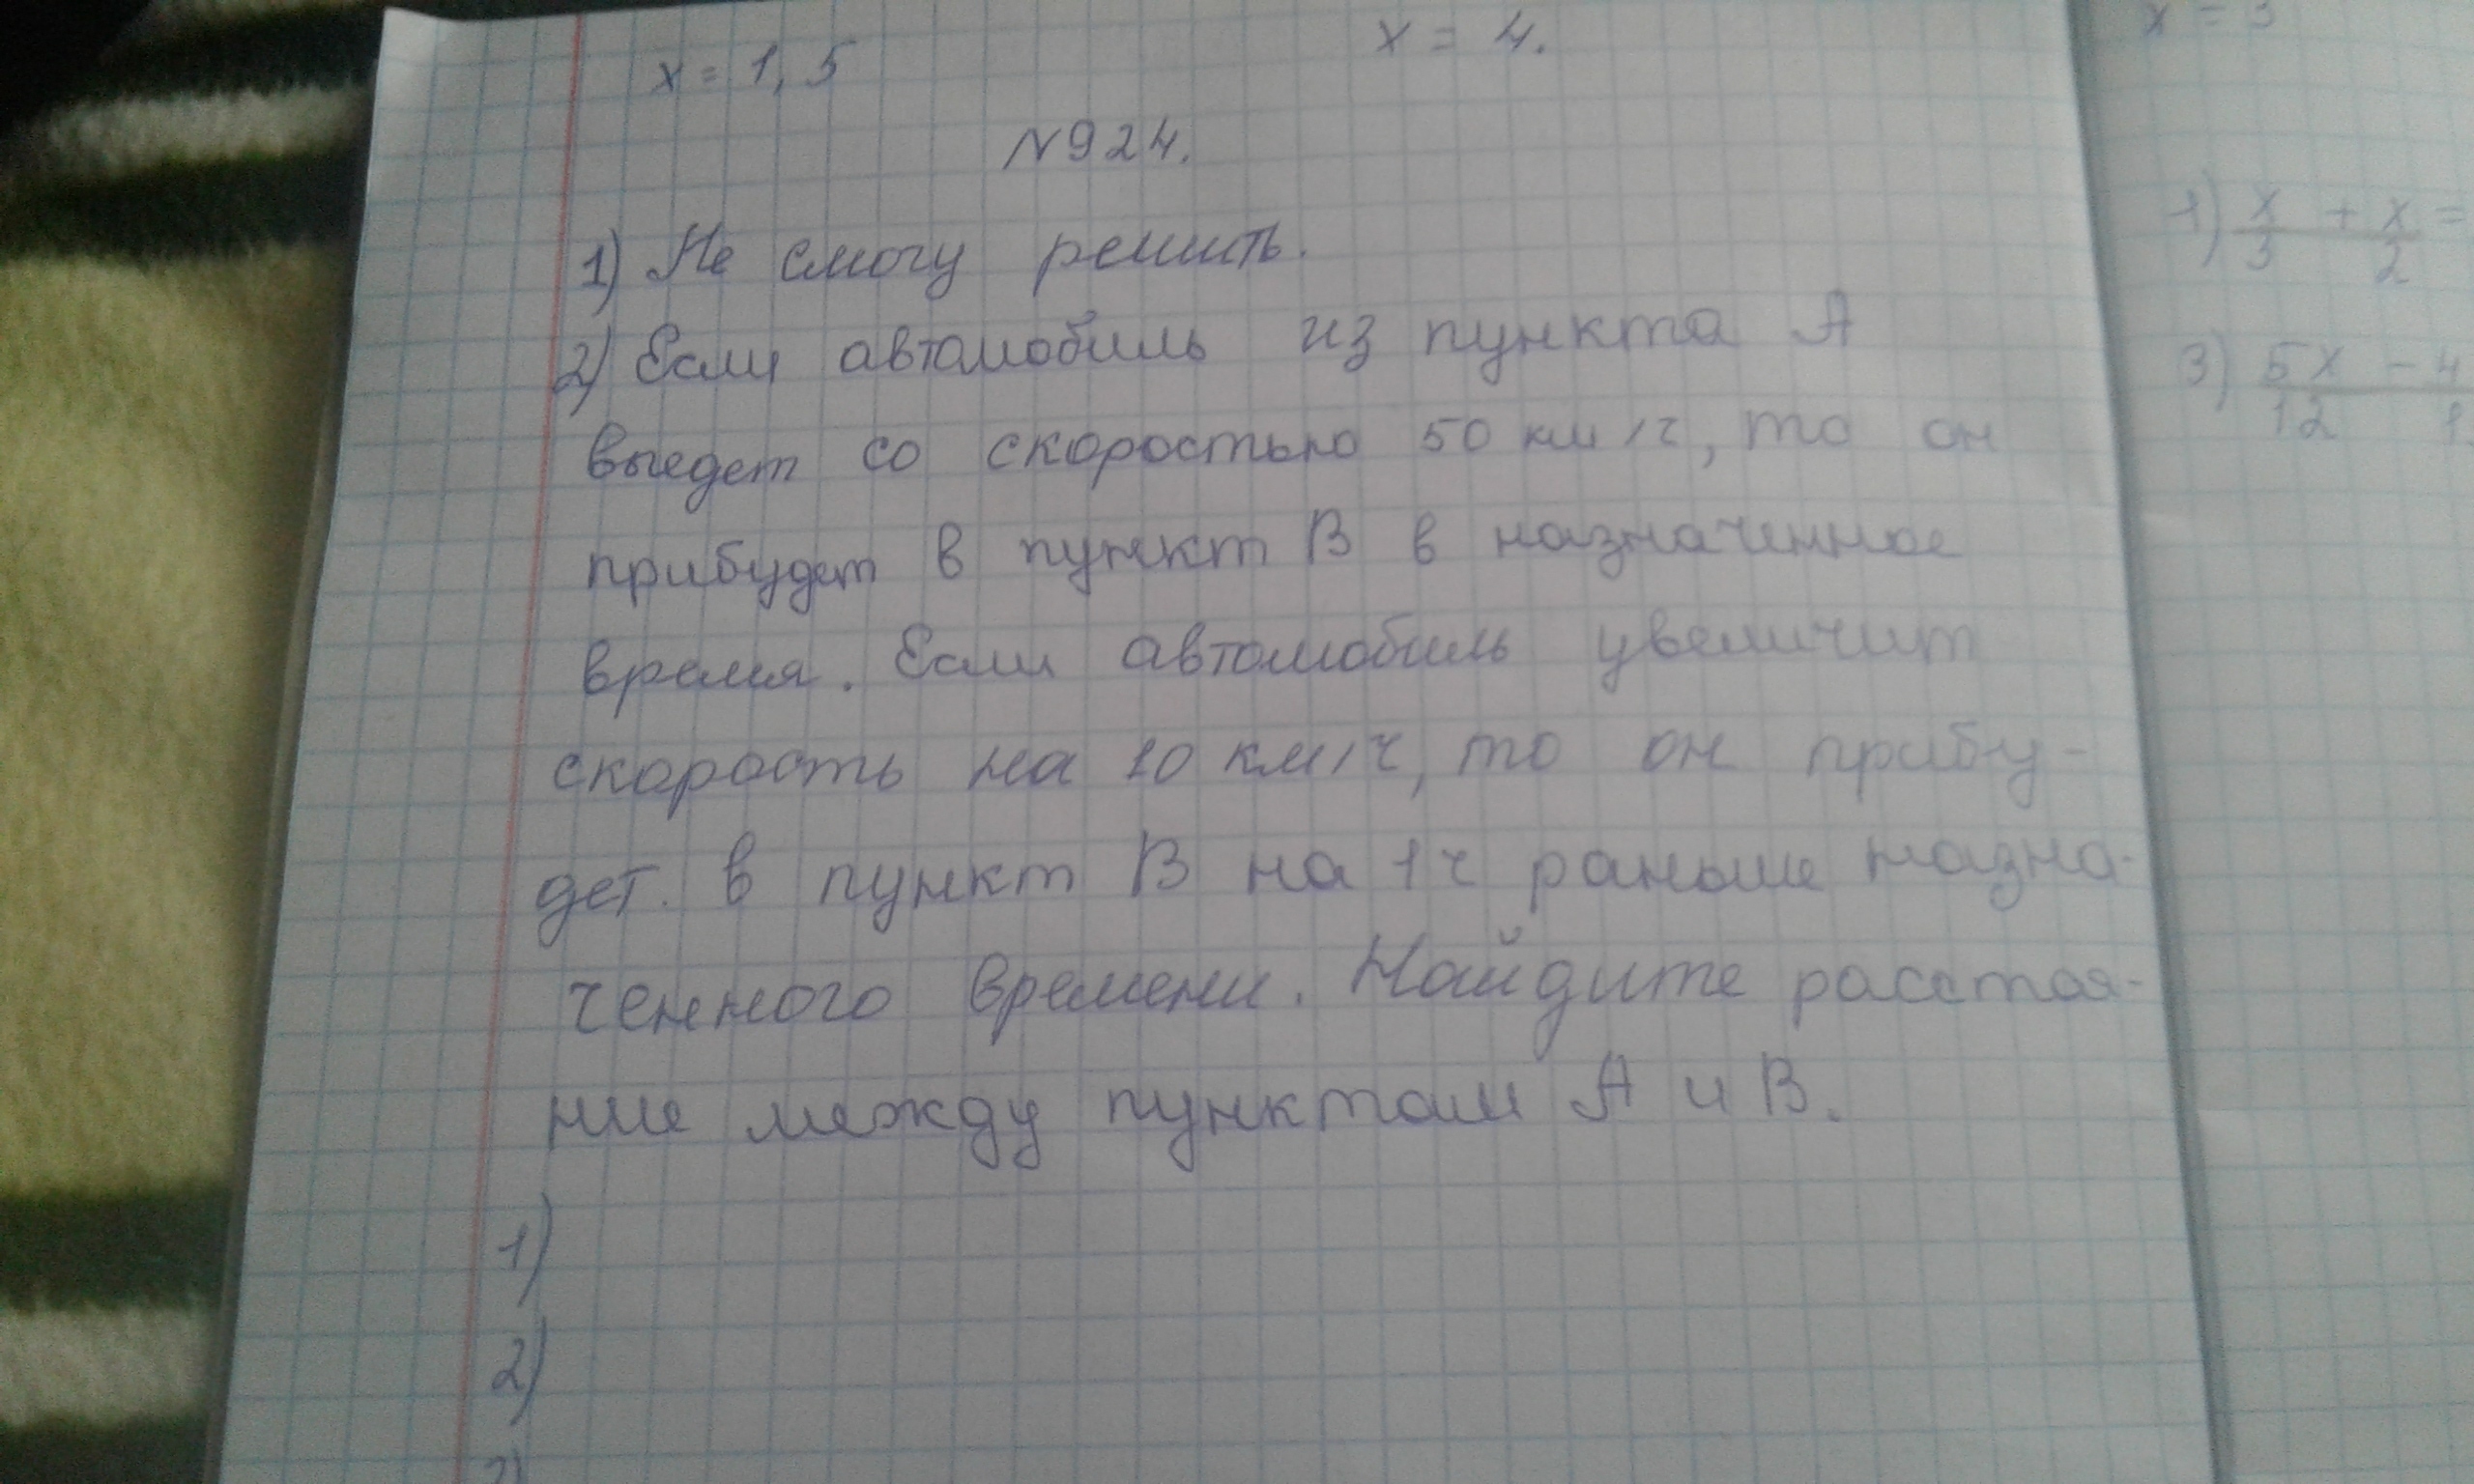 x = 1,5
x = 4.
N924.
1) Не смогу решить.
2) Если автомобиль из пункта A
выедет со скоростью 50 км/ч, то он
прибудет в пункт B в назначенное
время. Если автомобиль увеличит
скорость на 10 км/ч, то он прибу-
дет. в пункт B на 1 ч раньше назна-
ченного времени. Найдите расстоя-
ние между пунктами A и B.
1)
2)
x = 3
1) x/3 + x/2 =
3) 5x/12 - 4